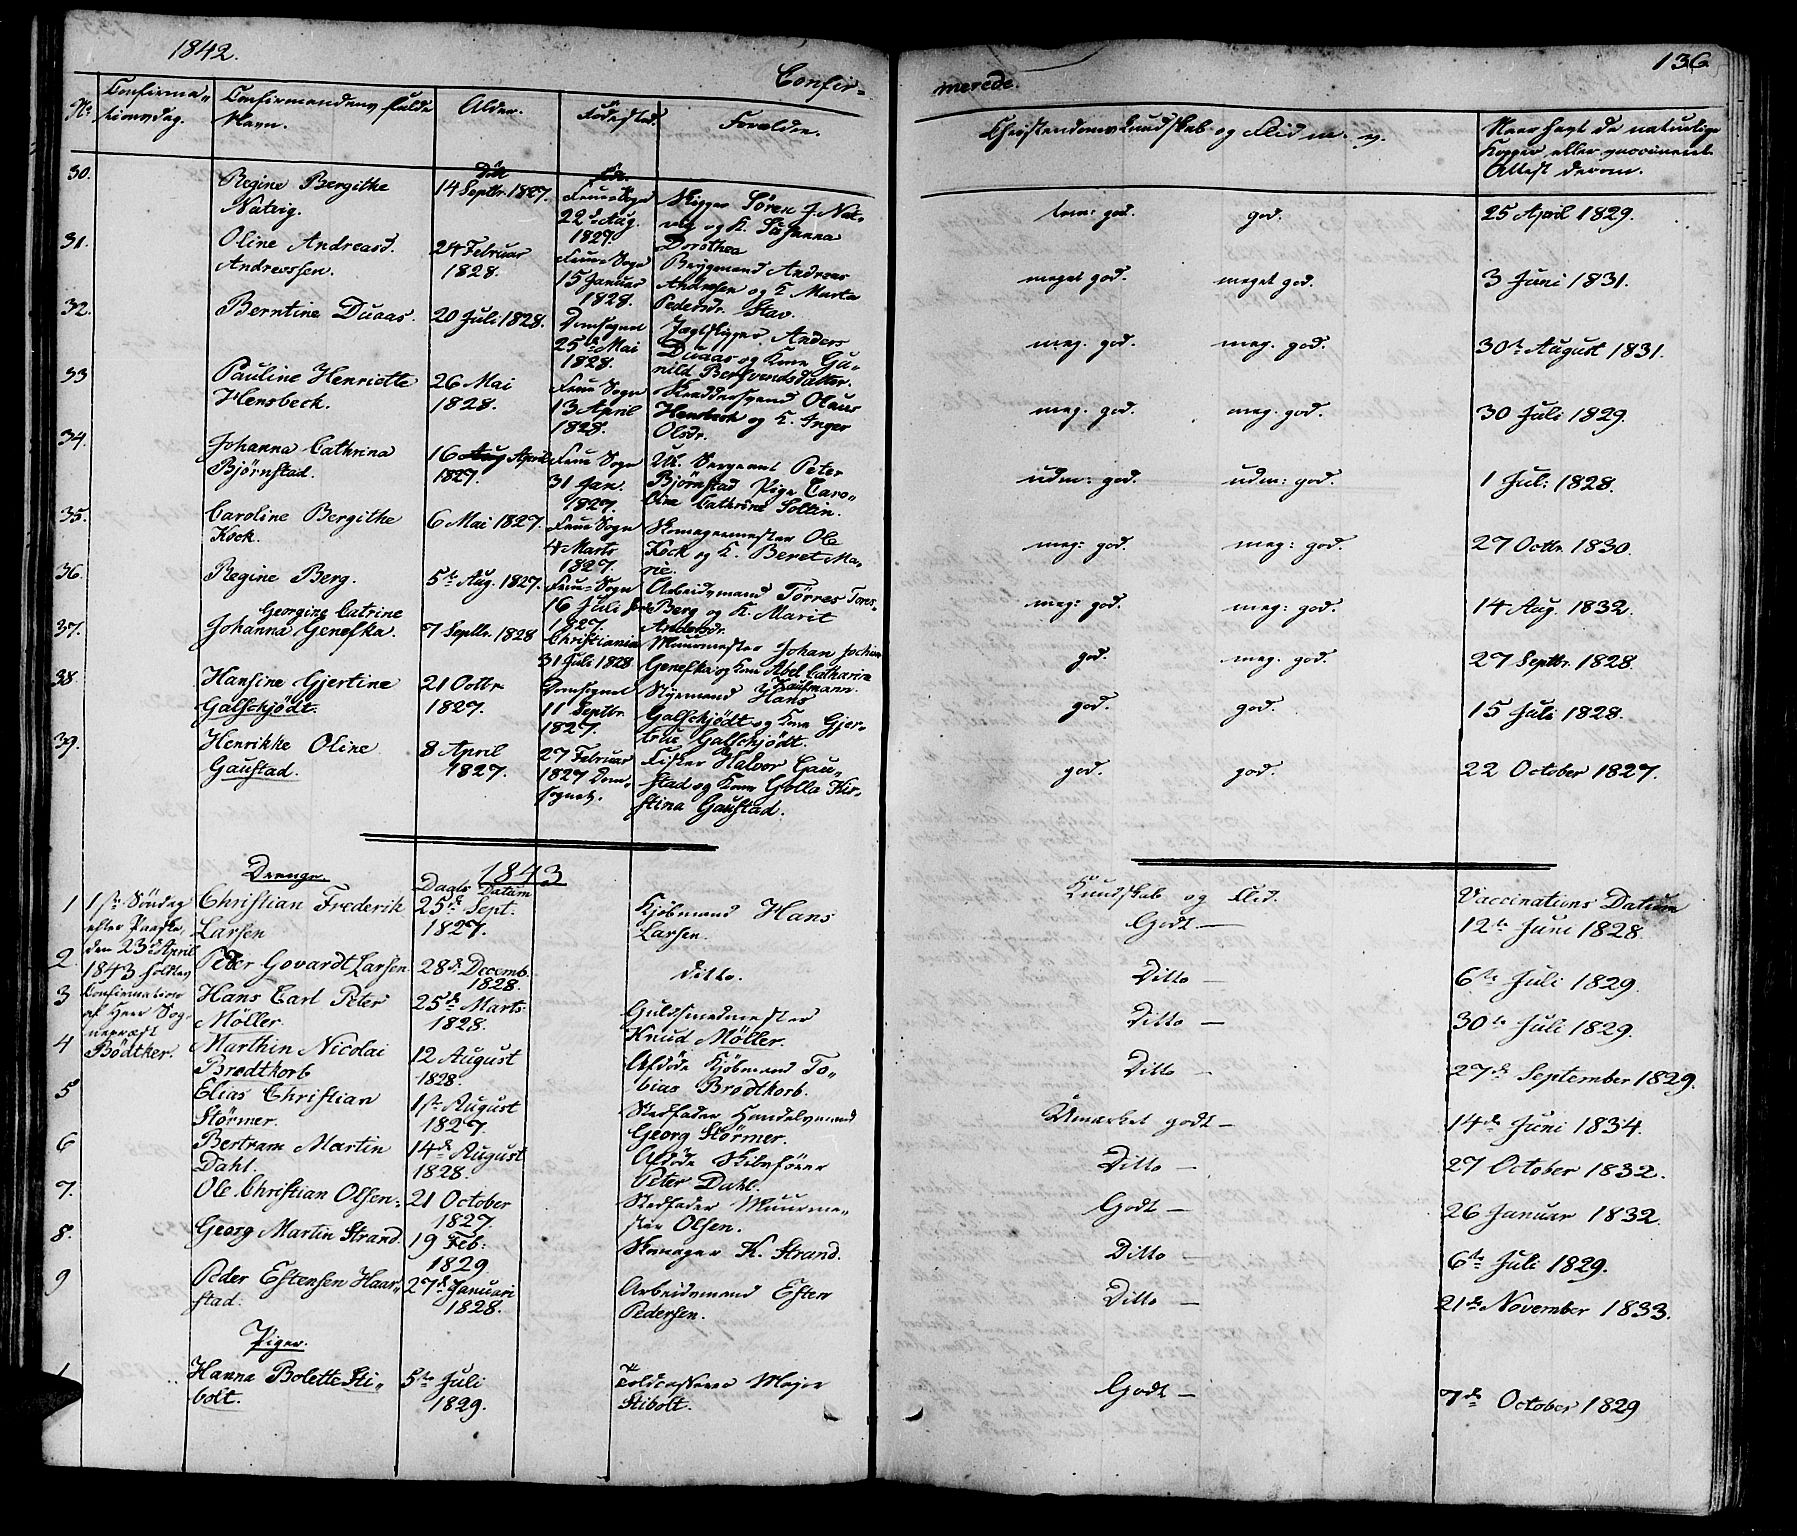 1842.
136
Confir-
merede.
No
Confirma-
tionsdag.
Confirmandens fulde
Navn.
Alder.
Fødested.
Forældre.
Christendoms Kundskab og Flid m. v.
Naar havt de naturlige
Kopper eller vaccineret.
Attest derom.
30.
Regine Bergithe
Natvig.
Døbt
14 Septbr. 1827.
Frue Sogn
22d Aug.
1827.
Skipper Sören J. Nat-
vig og K. Susanna
Dorothea
tem: god.
god.
25 April 1829.
31.
Oline Andreasd.
Andreassen.
24 Februar
1828.
Frue Sogn
15 Januar
1828.
Brygmand Andreas
og K. Marta
Pedersdr. Stav.
meget god.
meget god.
3 Juni 1831.
32.
Berntine Duaas.
20 Juli 1828.
Domsognet
25de Mai
1828.
Jægtskipper Anders
Duaas og Kone Gu-
nild Bersvendsdatter.
meg. god.
meg. god.
30te August 1831.
33
Pauline Henriette
Hensbeck.
26 Mai
1828.
Frue Sogn
13 April
1828.
Skræddersvend Olaus
Hensbeck og K. Inger
Olsdr.
meg. god.
meg. god.
30 Juli 1829.
34.
Johanna Cathrina
Bjørnstad.
16 Aug April
1827.
Frue Sogn
31 Jan.
1827.
Uk. Sergeant Peter
Bjørnstad Pige Caro-
line Cathrine Soltin.
udm: god.
udm: god.
1 Jul: 1828.
35.
Caroline Bergithe
Kock.
6 Mai 1827.
Frue Sogn
4 Marts
1827.
Skomagermester Ole
Kock og K. Beret Ma-
rie.
meg: god.
meg: god.
27 Octbr. 1830.
36.
Regine Berg.
5te Aug. 1827.
Frue Sogn
16 Juli
1827.
Arbeidsmand Törres Tores-
Berg og K. Marit
Andersdr.
meg: god.
meg: god.
14 Aug. 1832.
37.
Georgine Catrine
Johanna Genefka.
7 Septbr. 1828
Christiania
31 Juli 1828
Muurmester Johan Jochim
Genefka og Kone Abel Catharin
Kaufmann.
god.
meg. god.
27 Septbr. 1828.
38.
Hansine Gjertine
Galschjödt.
21 Octbr
1827.
Domsognet
11 Septbr.
1827.
Styrmand Hans
Galschjödt og Kone Gjer-
true Galschjödt.
god.
god.
15 Juli 1828.
39.
Henrikke Oline
Gaustad.
8 April
1827.
27 Februar
1827 Dom
sognet.
Fisker Halvor Gau-
stad og Kone Golla Kir-
stina Gaustad.
god.
god.
22 October 1827.
Drenge.
1843
Daabs Datum
Kundskab og Flid.
Vaccinations Datum
1
1ste Söndag
efter Paaske,
den 23de April
1843 holdtes
Confirmation
af Herr Sog-
nepræst
Bödtker.
Christian Frederik
Larsen
25de Sept.
1827.
Kjöbmand Hans
Larsen.
Godt —
12te Juni 1828.
2
Peter Govardt Larsen.
28de Decemb.
1828.
Ditto.
Ditto —
6te Juli 1829.
3
Hans Carl Peter
Möller.
25de Marts
1828.
Guldsmedmester
Knud Möller.
Ditto —
30te Juli 1829.
4
Marthin Nicolai
Brodtkorb
12 August
1828.
Afdöde Kjöbmand To-
bias Brodtkorb.
Ditto —
27de September 1829.
5
Elias Christian
Störmer.
1ste August
1827.
Stedfader Handelsmand
Georg Störmer.
Udmærket godt —
14de Juni 1834.
6
Bertram Martin
Dahl.
14de August
1828.
Afdöde Skibsförer
Peter Dahl.
Ditto —
27 October 1832.
7.
Ole Christian Olsen.
21 October
1827.
Stedfader Muurme-
ster Olsen.
Godt —
26 Januar 1832.
8.
Georg Martin Strand
19 Feb:
1829
Skomager K. Strand.
Ditto —
6te Juli 1829.
9
Peder Estensen Haar-
stad.
27de Januari
1828.
Arbeidsmand Esten
Pedersen.
Ditto —
21de November 1833.
Piger.
1
Hanna Bolette Sti-
bolt.
5te Juli
1829.
Toldcasserer Major
Stibolt.
Godt —
7de October 1829